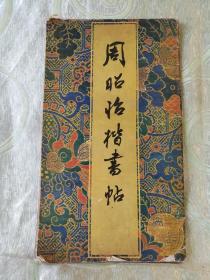 周昭怡楷書帖